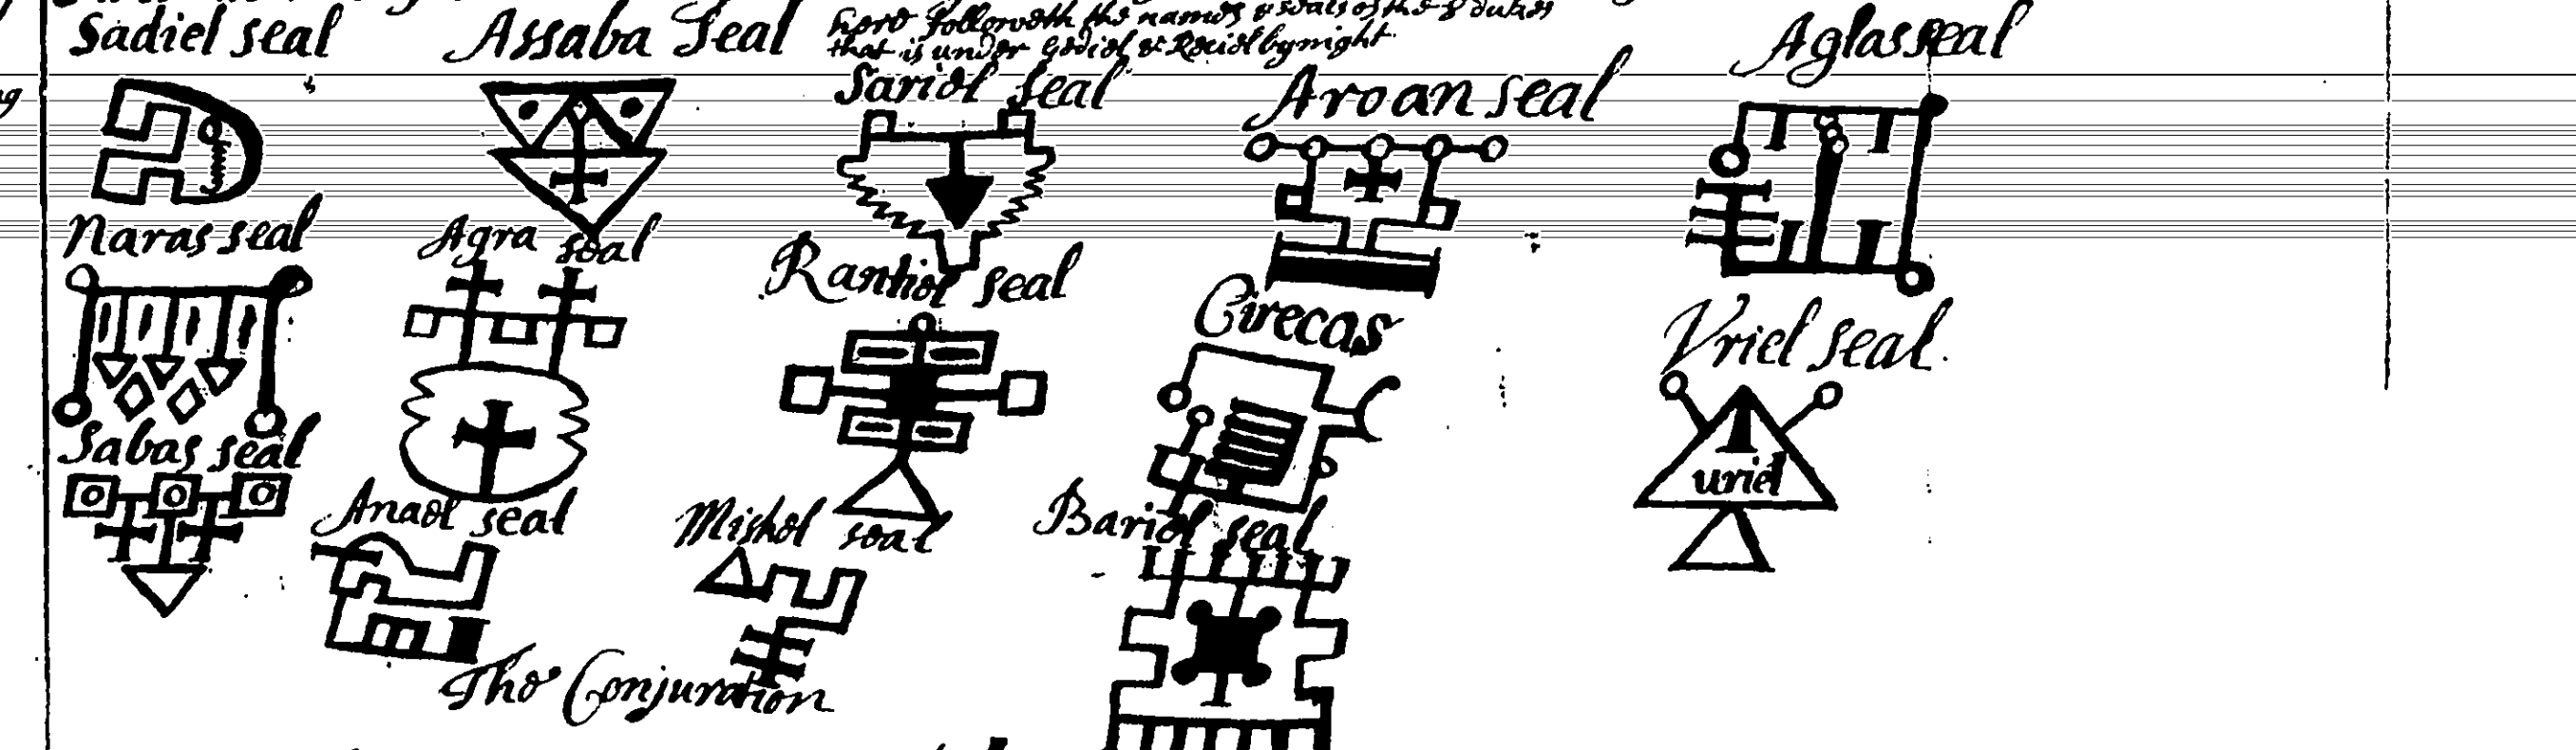 Sadiel seal
Assaba Seal
here Followeth the names & seals of the 8 dukes
that is under Gediel & Reciel by night
Sariel seal
Aroan seal
Aglas seal
Naras seal
Agra seal
Ranhiel seal
Cirecas
Vriel seal
uriel
Sabas seal
Anael seal
Mishel seal
Bariel seal
The Conjuration